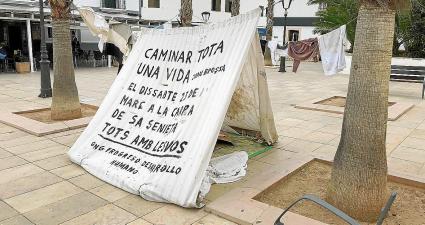 CAMINAR TOTA
UNA VIDA JOAN BROSSA
EL DISSABTE 27 DE
MARÇ A LA CARPA
DE SA SENIETA
TOTS AMB LEIVOS
ONG PROGRESO DESARROLLO
HUMANO